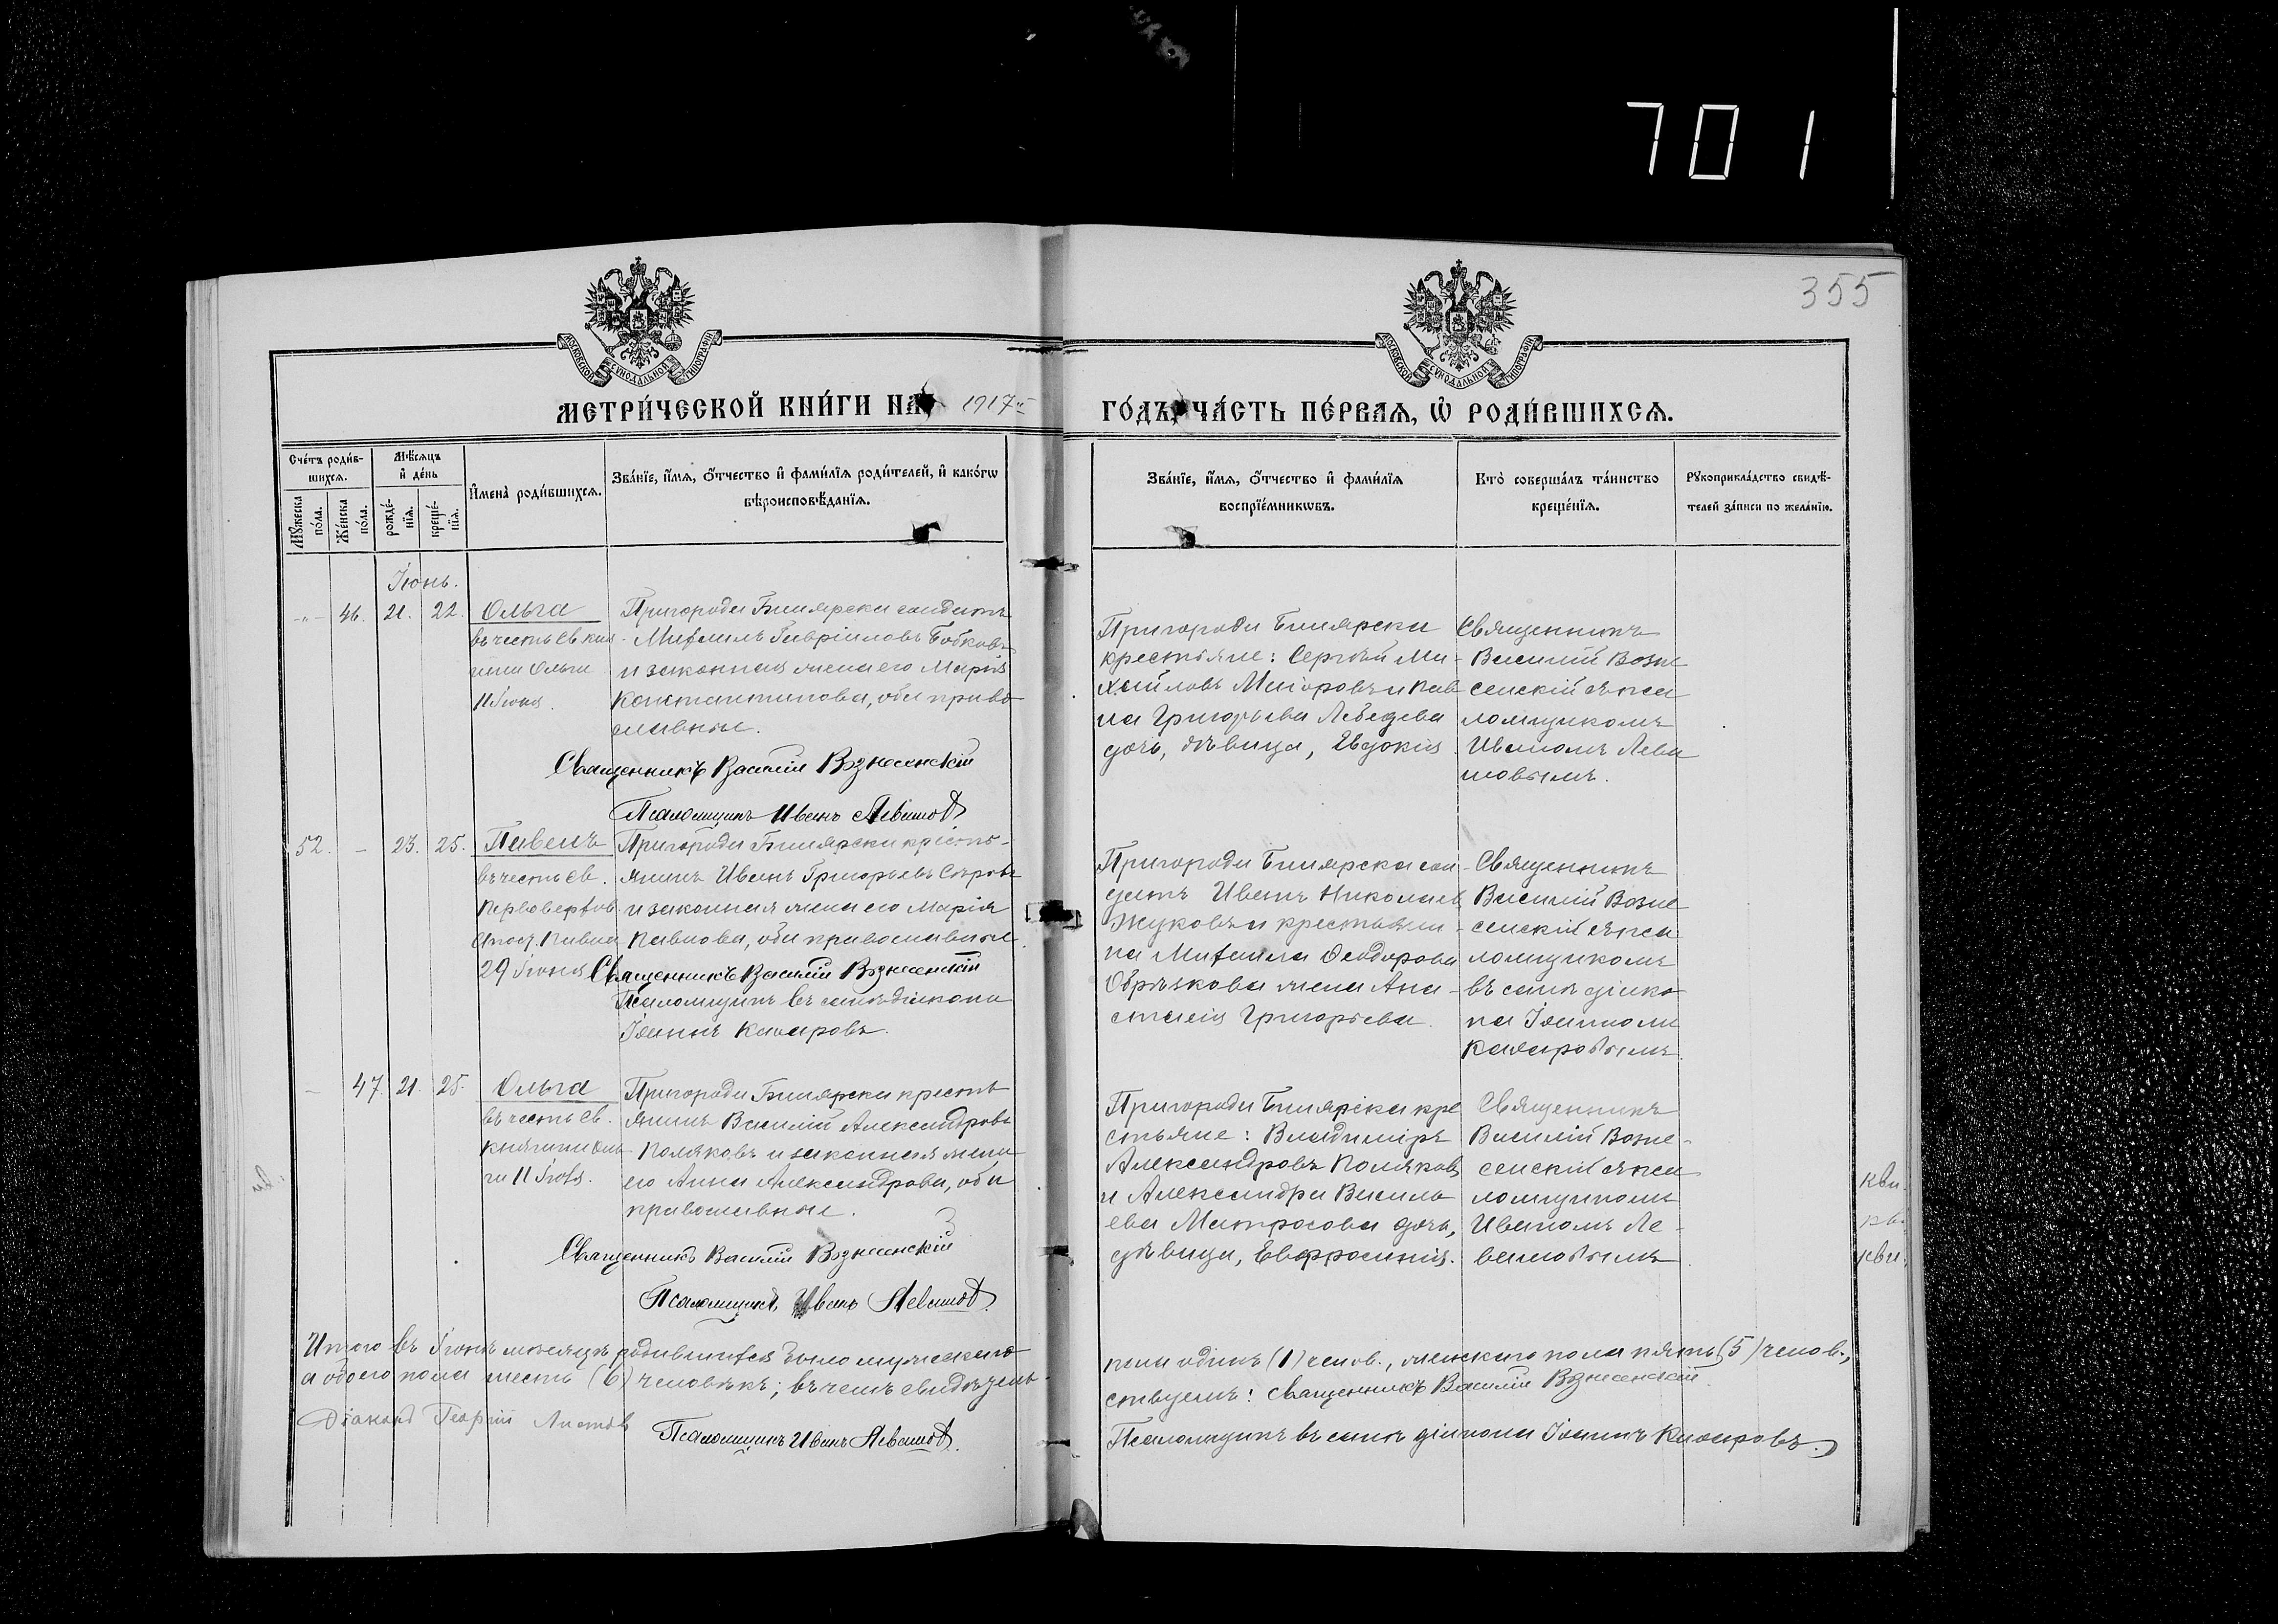 701
355
МОСКОВСКОЙ СѴНОДАЛЬНОЙ ТИПОГРАФІИ
МОСКОВСКОЙ СѴНОДАЛЬНОЙ ТИПОГРАФІИ
МЕТРИ́ЧЕСКОЙ КНИ́ГИ НА 1917й ГО́ДЪ, ЧА́СТЬ ПЕ́РВАЯ, Ѡ҆ РОДИ́ВШИХСЯ.
Сче́тъ роди́в-
шихся.
Мꙋ́жеска по́ла.
Же́нска по́ла.
Мѣ́сяцъ
и҆ де́нь
рожде́-
нїя.
креще́-
нїя.
И҆мена̀ роди́вшихся.
Зва́нїе, и҆́мя, ѻ҆́тчество и҆ фами́лїя роди́телей, и҆ како́гѡ
вѣроисповѣ́данїя.
Зва́нїе, и҆́мя, ѻ҆́тчество и҆ фами́лїя
воспрїе́мникѡвъ.
Кто̀ соверша́лъ та́инство
креще́нїя.
Рꙋкоприкла́дство свидѣ́-
телей за́писи по жела́нїю.
Іюнь.
-"- 46. 21. 22. Ольга
въ честь Св. кня-
гини Ольги
11 Іюля.
Пригорода Билярска солдатъ
Михаилъ Гавріиловъ Бобковъ
и законная жена его Марія
Константинова, оба право-
славные.
Священникъ Василій Вознесенскій
Псаломщикъ Иванъ Левашов
Пригорода Билярска
крестьяне: Сергѣй Ми-
хайловъ Маіоровъ и Пав
ла Григорьева Лебедева
дочь, дѣвица, Евдокія
Священникъ
Василій Возне
сенскій съ пса
ломщикомъ
Иваномъ Лева
шовымъ.
52. - 23. 25. Павелъ
въ честь Св.
Первоверхов
Апост. Павла
29 Іюня
Пригорода Билярска кресть-
янинъ Иванъ Григорьевъ Сѣровъ
и законная жена его Марія
Павлова, оба православные.
Священникъ Василій Вознесенскій
Псаломщикъ въ санѣ діакона
Іоаннъ
Пригорода Билярска сол-
датъ Иванъ Николаев
Жуковъ и крестьяни-
на Михаила Ѳеодорова
Обрѣзкова жена Ана-
стасія Григорьева.
Священникъ
Василій Возне
сенскій съ пса
ломщикомъ
въ санѣ діако
на Іоанномъ
- 47. 21. 25. Ольга
въ честь Св.
княгини Оль
ги 11 Іюля.
Пригорода Билярска кресть
янинъ Василій Александровъ
Поляковъ и законная жена
его Анна Александрова, оба
православные.
3
Священникъ Василій Вознесенскій
Псаломщикъ Иванъ Левашов.
Пригорода Билярска кре
стьяне: Владиміръ
Александровъ Поляковъ
и Александра Василь
ева Матросова дочь,
дѣвица, Евфросинія.
Священникъ
Василій Возне-
сенскій съ пса
ломщикомъ
Иваномъ Ле-
вашовымъ
Итого въ Іюнѣ мѣсяцѣ родившихся было мужескаго пола одинъ (1) челов., женскаго пола пять (5) челов.,
а обоего пола шесть (6) человѣкъ; въ чемъ свидѣтель-ствуемъ: Священникъ Василій Вознесенскій.
Діаконъ Георгій Листов
Псаломщикъ Иванъ Левашов.
Псаломщикъ въ санѣ діакона Іоаннъ